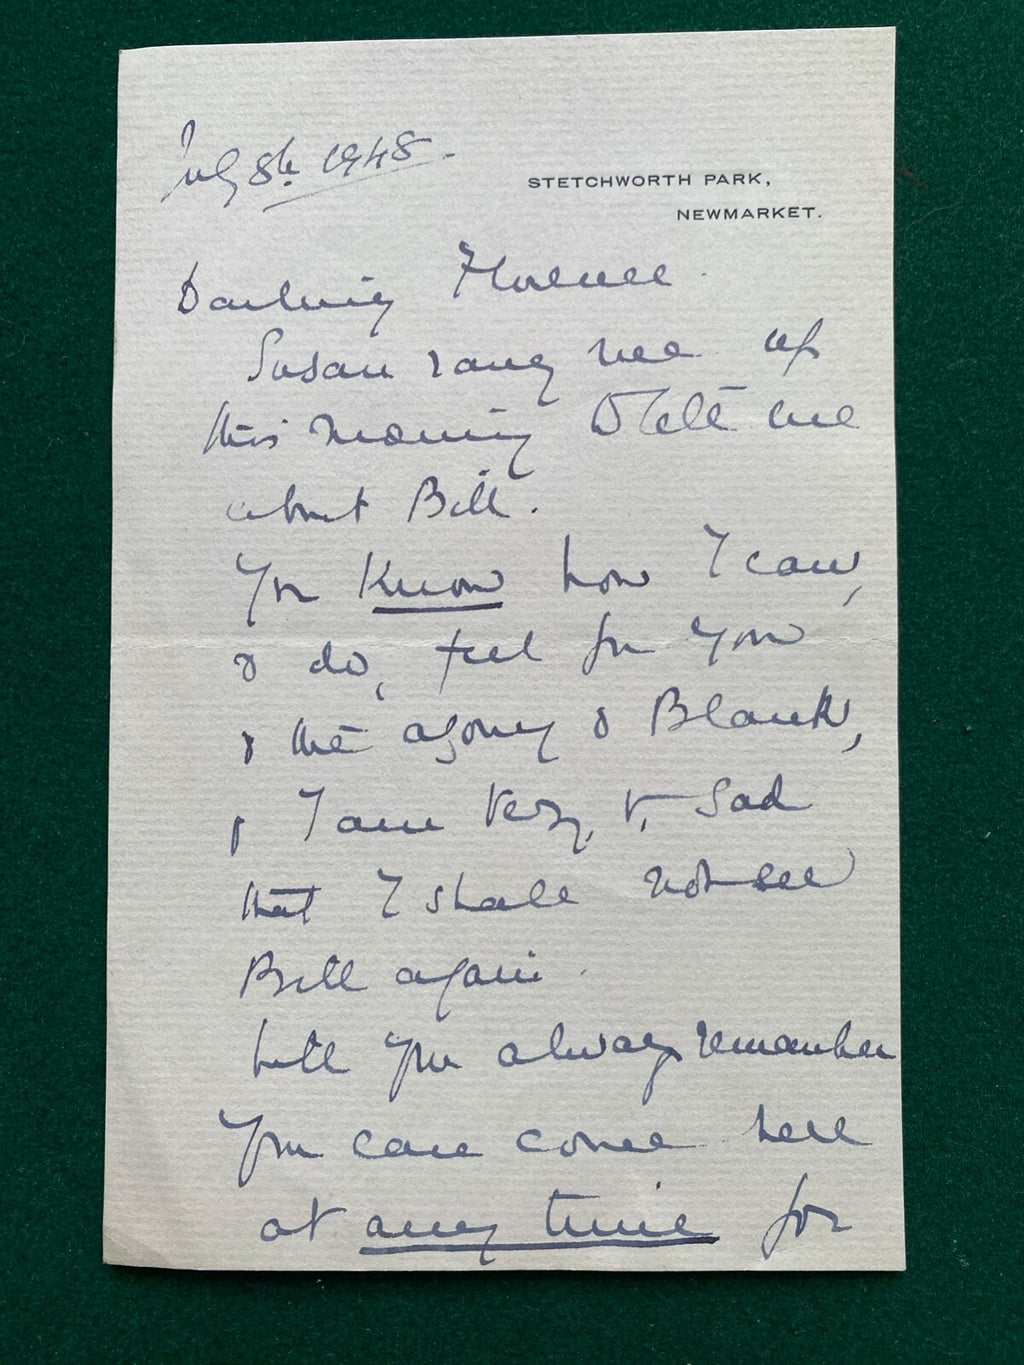 July 8th. 1948.
STETCHWORTH PARK,
NEWMARKET.
Darling Florence.
Susan rang me up
this morning & told me
about Bill.
You know how I can,
& do, feel for you
& the agony & Blank,
& I am very, v, sad
that I shall not see
Bill again.
Will you always remember
you can come here
at any time for